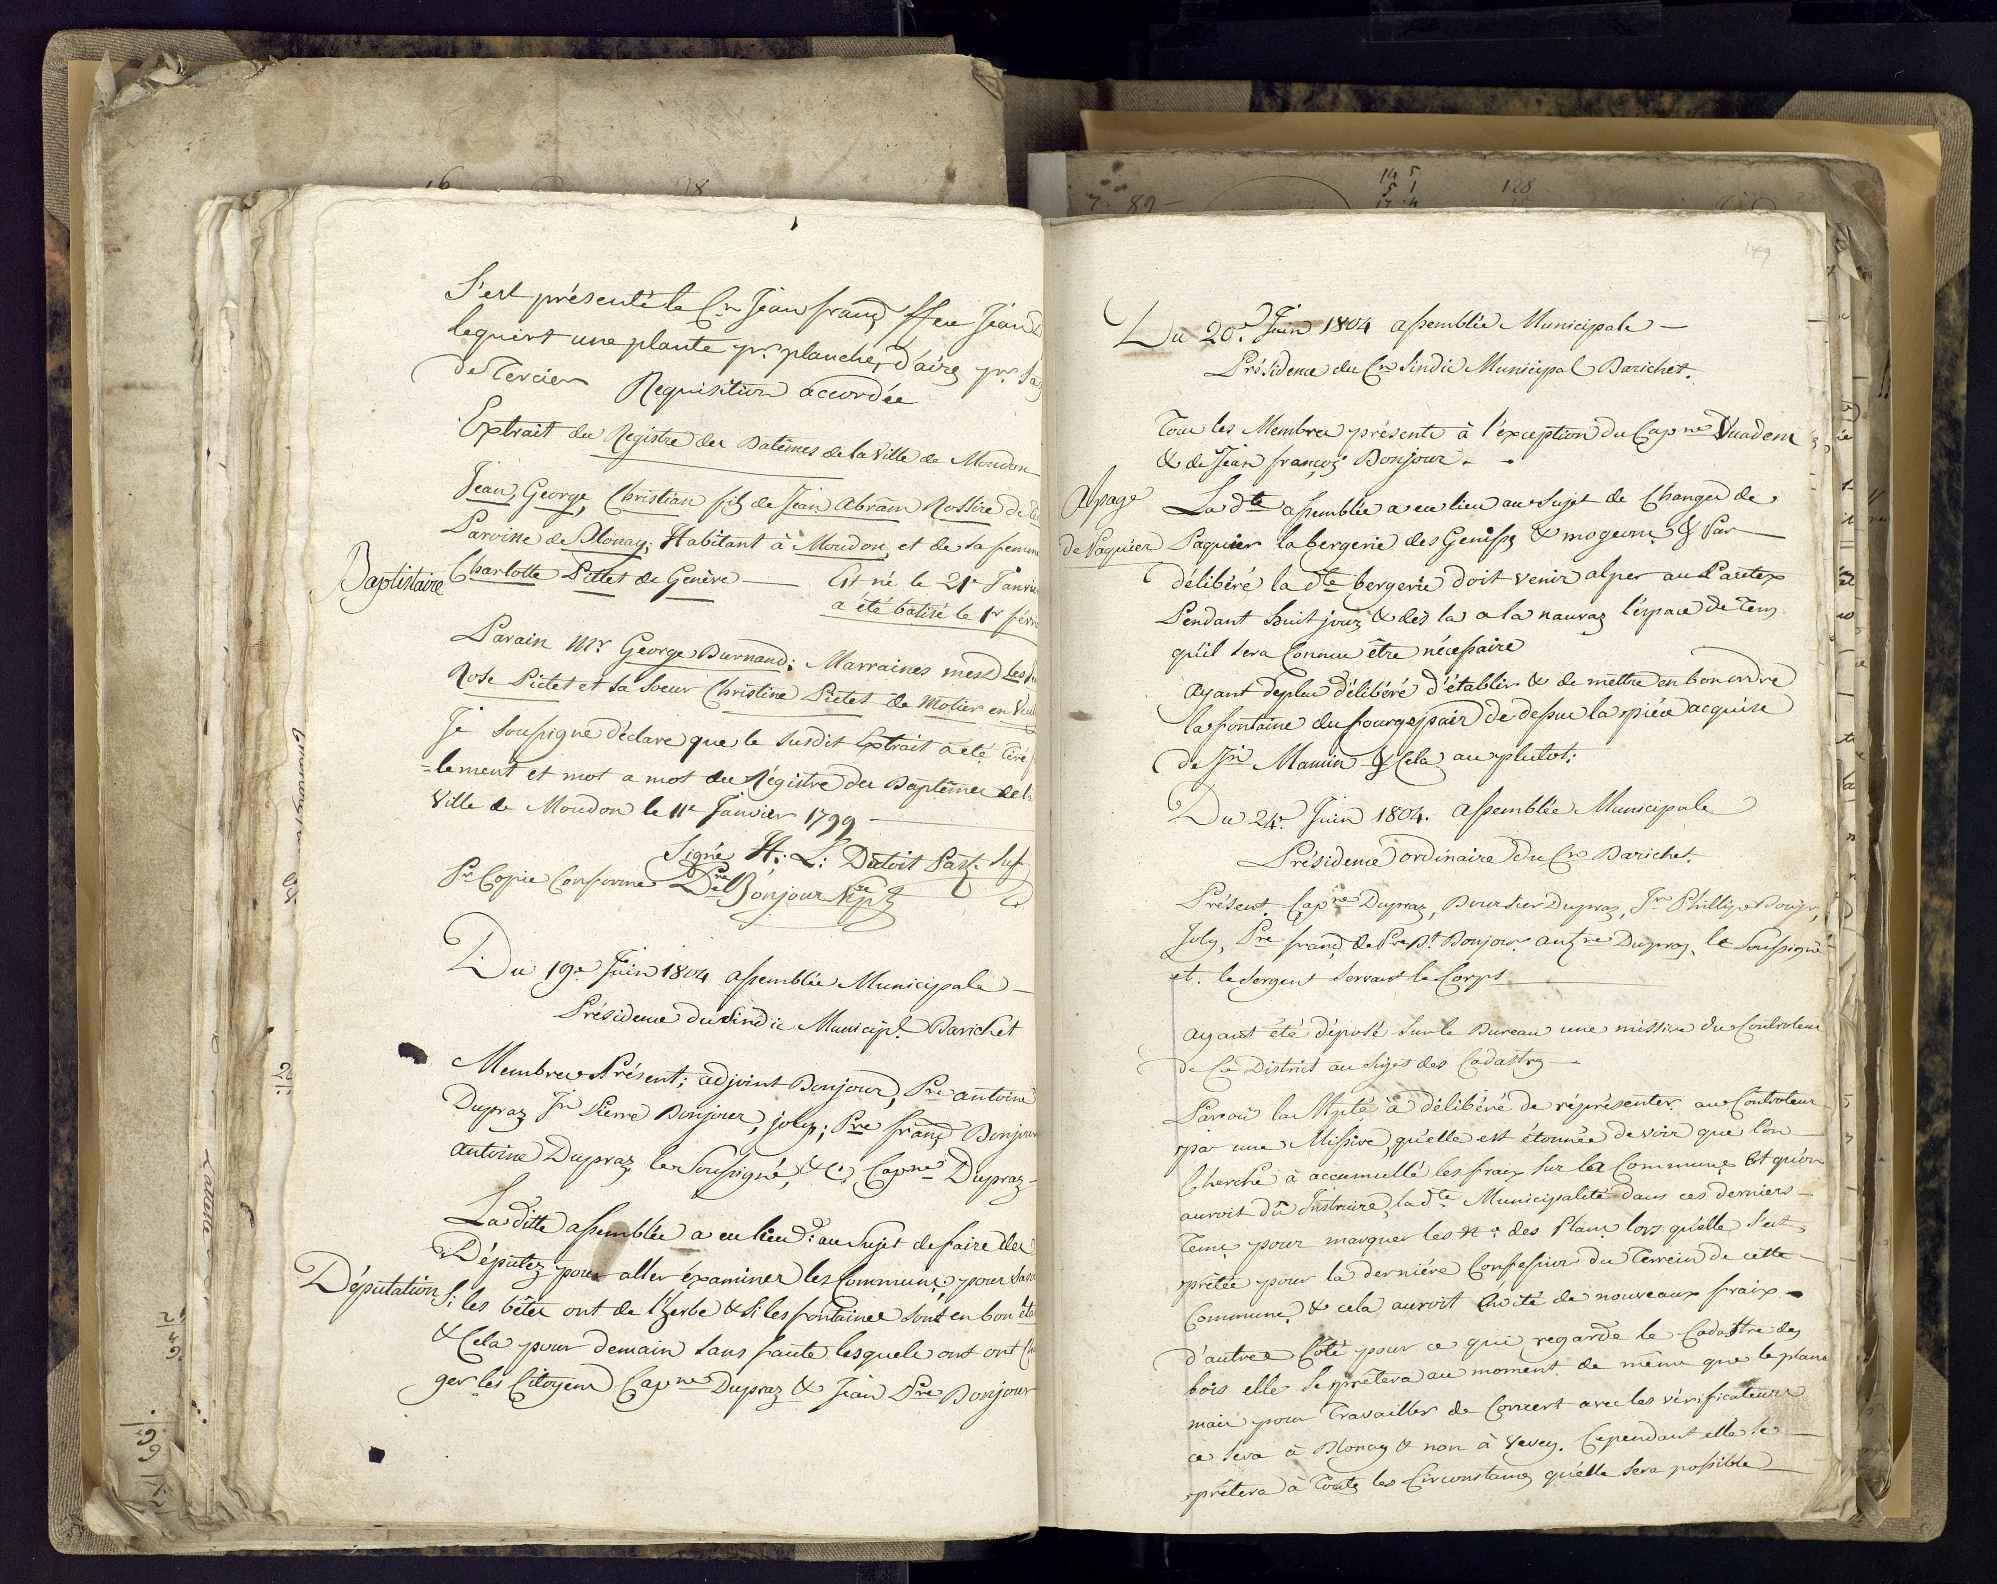 S'est présenté le Cn Jean franç ffeu Jean
lequiert une plante pr. planche, d'aire, pr. sa
de Tercier Requisition accordée
Extrait du Registre des Batêmes de la Ville de Moudon
Jean, George, Christian fils de Jean Abram Rossire de
Paroisse de Blonay; Habitant à Moudon, et de sa femme
Baptistaire
Charlotte Pittet de Genève — Est né le 21e Janvier
a été batisé le 1r févri
Parain Mr George Burnand; Marraines mesd.les
Rose Pictet et sa Soeur Christine Pictet de Motier en
Je soussigné déclare que le susdit Extrait a été tiré
=lement et mot a mot du Régistre des Baptêmes de la
Ville de Moudon le 11e Janvier 1799 —
Signé H: L: Dutoit Past. Suf
Pr Copie Conforme Pre Bonjour
Du 19e Juin 1804 assemblée Municipale —
Présidence du Sindic Municipl. Barichet
Membres Présent; adjoint Bonjour, Pre antoine
Dupraz Jn Pierre Bonjour, joly; Pre franç Bonjour
antoine Dupraz, le Soussigné, & C. Capne Dupraz —
La ditte assemblée a eu lieu d: au Sujet de faire des
Députez pour aller éxaminer les Commune, pour Savo
Députation
Si les bêtes ont de l'herbe & si les fontaines sont en bon éta
& Cela pour demain sans faute lesquels ont ont Ch
ger les Citoyens Capne Dupraz & Jean Pre Bonjour
149
Du 20e. Juin 1804 assemblée Municipale —
Présidence du Cn Sindic Municipal Barichet.
Tous les Membres présents à l'éxception du Capne Vuadens
& de Jean françois Bonjour. -
Alpage
La dte assemblée a eu lieu au Sujet de Changer de
de Paquier
Paquier la bergerie des Genisses & mogeons & Par —
délibéré la dte bergerie doit venir alper au Partex
Pendant huit jours & dès la a la nauvaz l'éspace de Tems
qu'il sera Connue être nécessaire
ayant deplus délibéré d'établir & de mettre en bon ordre
la fontaine du de dessus la pièce acquise
de Jn Mamin & Cela au plutot;
Du 24e. Juin 1804. assemblée Municipale
Présidence ordinaire du Cn Barichet.
Présent. Capne Dupraz, Boursier Dupraz, Jn Phillipe Bonjr,
Joly, Pre franç de Pre Dt Bonjour antne Dupraz, le Soussigné
et. le Sergent servant le Corps —
ayant été déposé sur le Bureau une missive du Controleur
de Ce District au Siget des Cadastres —
Par où la Mpté à délibéré de réprésenter au Controleur
par une Missive, qu'elle est étonnée de voir que l'on
Cherche à accumullé les fraix sur la Commune Et qu'on
auroit dû Instruire, la dte Municipalité dans ces derniers —
Tems pour marquer les No. des Plans lors qu'elle s'est
prêtée pour la dernière Confession du Terrein de cette
Commune & cela auroit Evité de nouveaux fraix -
d'autre Côté pour ce qui regarde le Cadastre des
bois elle se prêtera au moment de même que le plans
mais pour Travailler de Concert avec les vérificateurs
ce sera à Blonay & non à Vevey. Cependant elle se —
prêtera à Toutes les Circonstances qu'elle sera possible